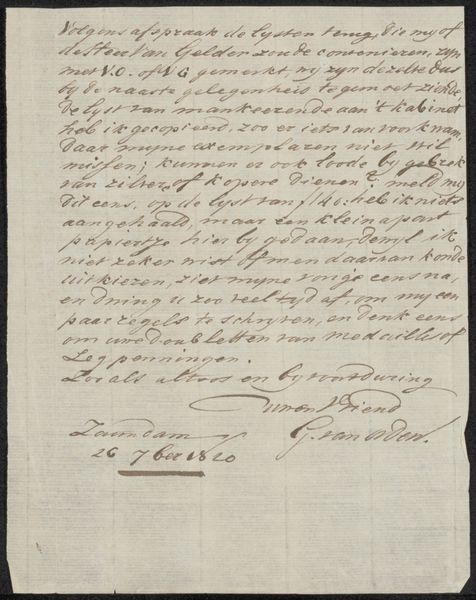 Volgens afspraak de lysten terug, die my of
de Heer Van Gelder zoude convenieren, zyn
met V.O. of VG gemerkt, wy zyn dezelve dus
by de naaste gelegenheit tegemoet ziende,
de lyst van mankeerende aan 't kabinet
heb ik gecopieerd, zoo er iets van voorkwam,
daar myne exemplaren niet wil
missen; kunnen er ook loode by gebrek
van zilver of kopere dienen? meld my
dit eens, op de lyst van f 140: heb ik niets
aangehaald, maar een klein apart
papiertze hier by gedaan, dewyl ik
niet zeker wist of men daar van konde
uitkiezen, ziet myne vorige eens na,
en dwing u zoo veel tyd af, om my een
paar regels te schryven, en denk eens
om uwe doubletten van medailles of
Legpenningen.
Zoo als altoos en by voortduring
uwen Vriend
G. van Orden.
Zaandam
26 7ber 1820